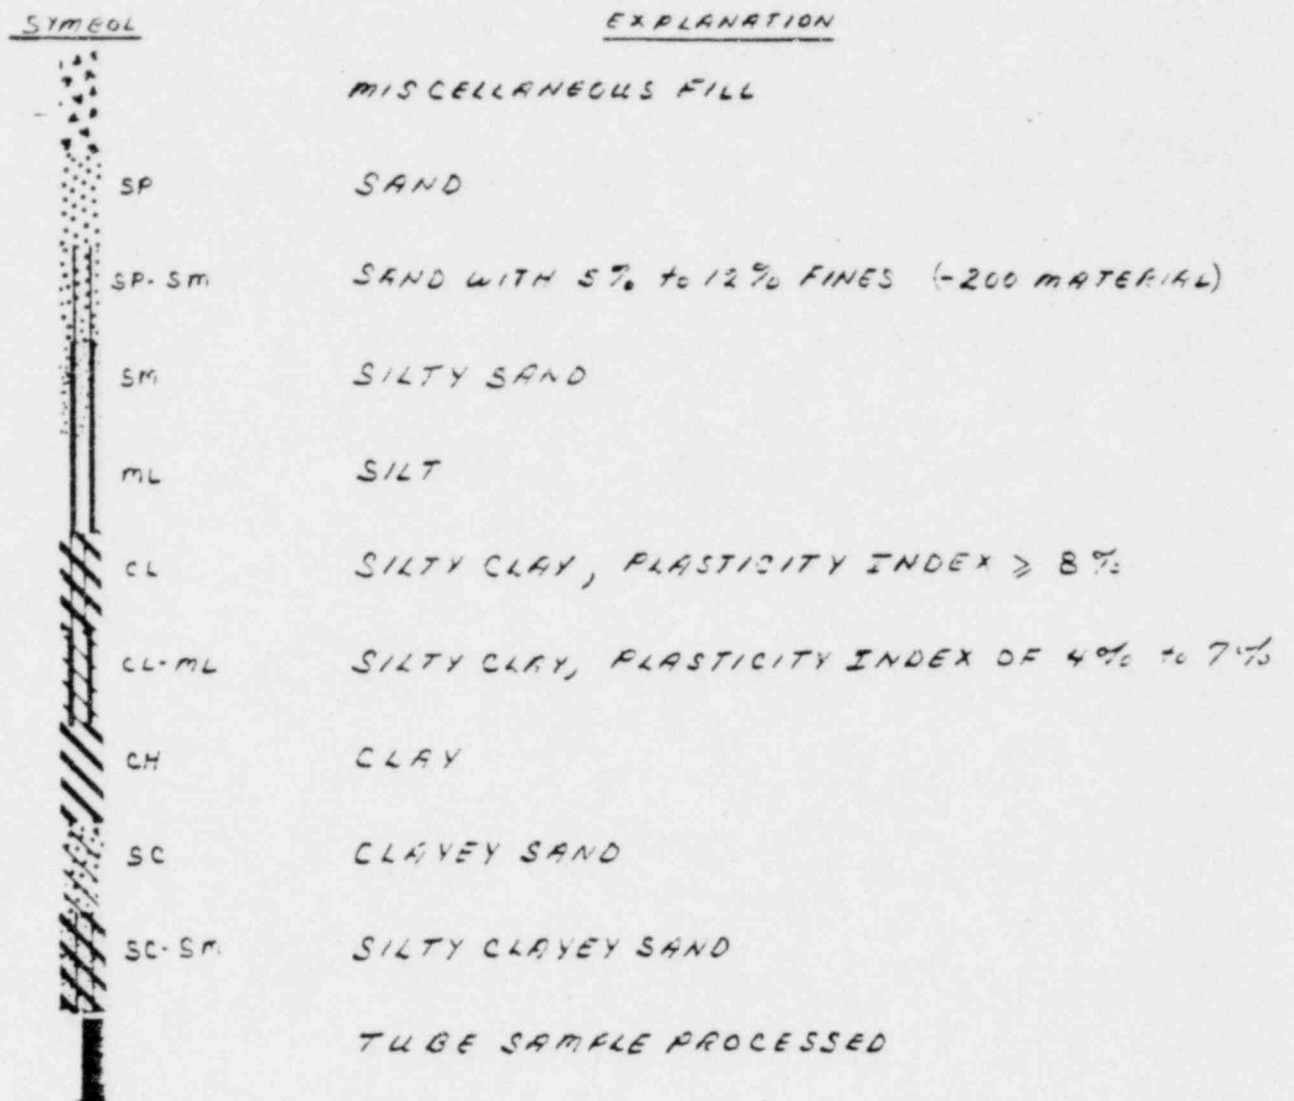 SYMBOL EXPLANATION
MISCELLANEOUS FILL
SP SAND
SP-SM SAND WITH 5% to 12% FINES (-200 MATERIAL)
SM SILTY SAND
ML SILT
CL SILTY CLAY, PLASTICITY INDEX ⩾ 8%
CL-ML SILTY CLAY, PLASTICITY INDEX OF 4% to 7%
CH CLAY
SC CLAYEY SAND
SC-SM SILTY CLAYEY SAND
TUBE SAMPLE PROCESSED